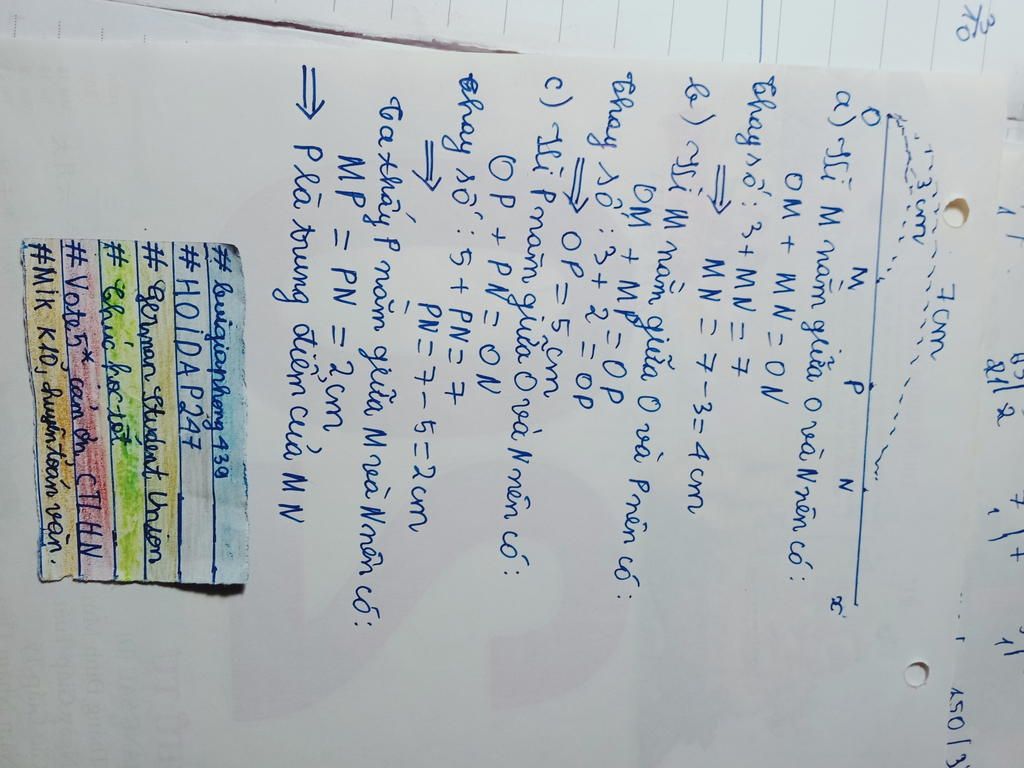 7cm
3cm
O M P N x
a) Vì M nằm giữa O và N nên có:
OM + MN = ON
Thay số: 3 + MN = 7
⇒ MN = 7 - 3 = 4cm
b) Vì M nằm giữa O và P nên có:
OM + MP = OP
Thay số: 3 + 2 = OP
⇒ OP = 5cm
c) Vì P nằm giữa O và N nên có:
OP + PN = ON
Thay số: 5 + PN = 7
⇒ PN = 7 - 5 = 2cm
Ta thấy P nằm giữa M và N nên có:
MP = PN = 2cm
⇒ P là trung điểm của MN
#buigiaphong439
#HOIDAP247
#german student Union
#Chúc học tốt
#Vote 5* cảm ơn, CTLHN
#Mik K10, chuyên toán văn.
3/10
150